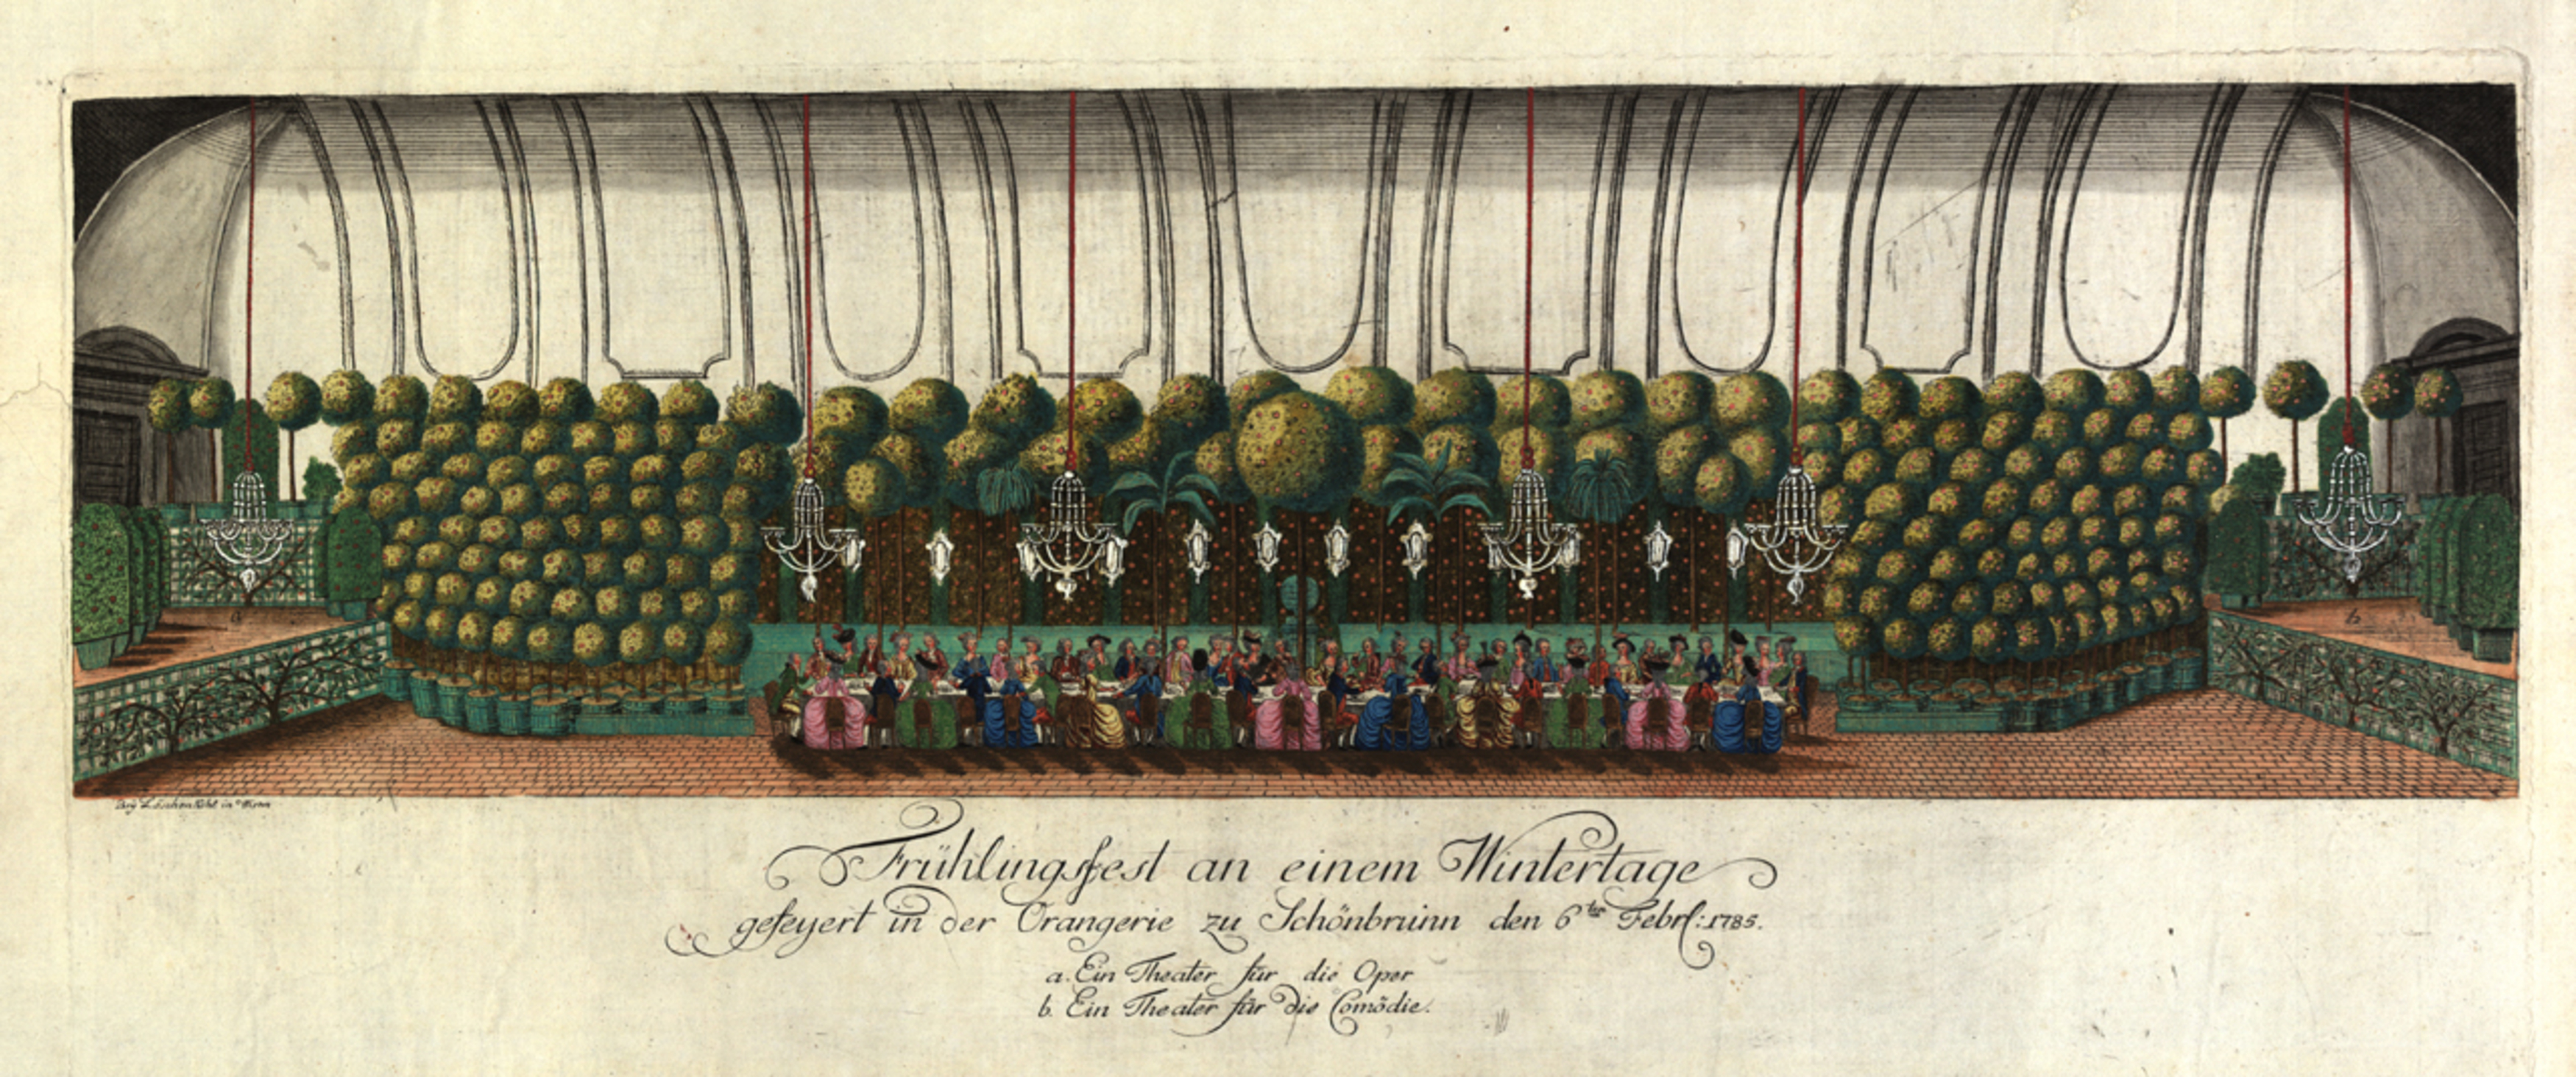 Bey Löschenkohl in Wienn
Frühlingsfest an einem Wintertage
gefeyert in der Orangerie zu Schönbrunn den 6ten Febrl: 1785.
a. Ein Theater für die Oper
b. Ein Theater für die Comödie.